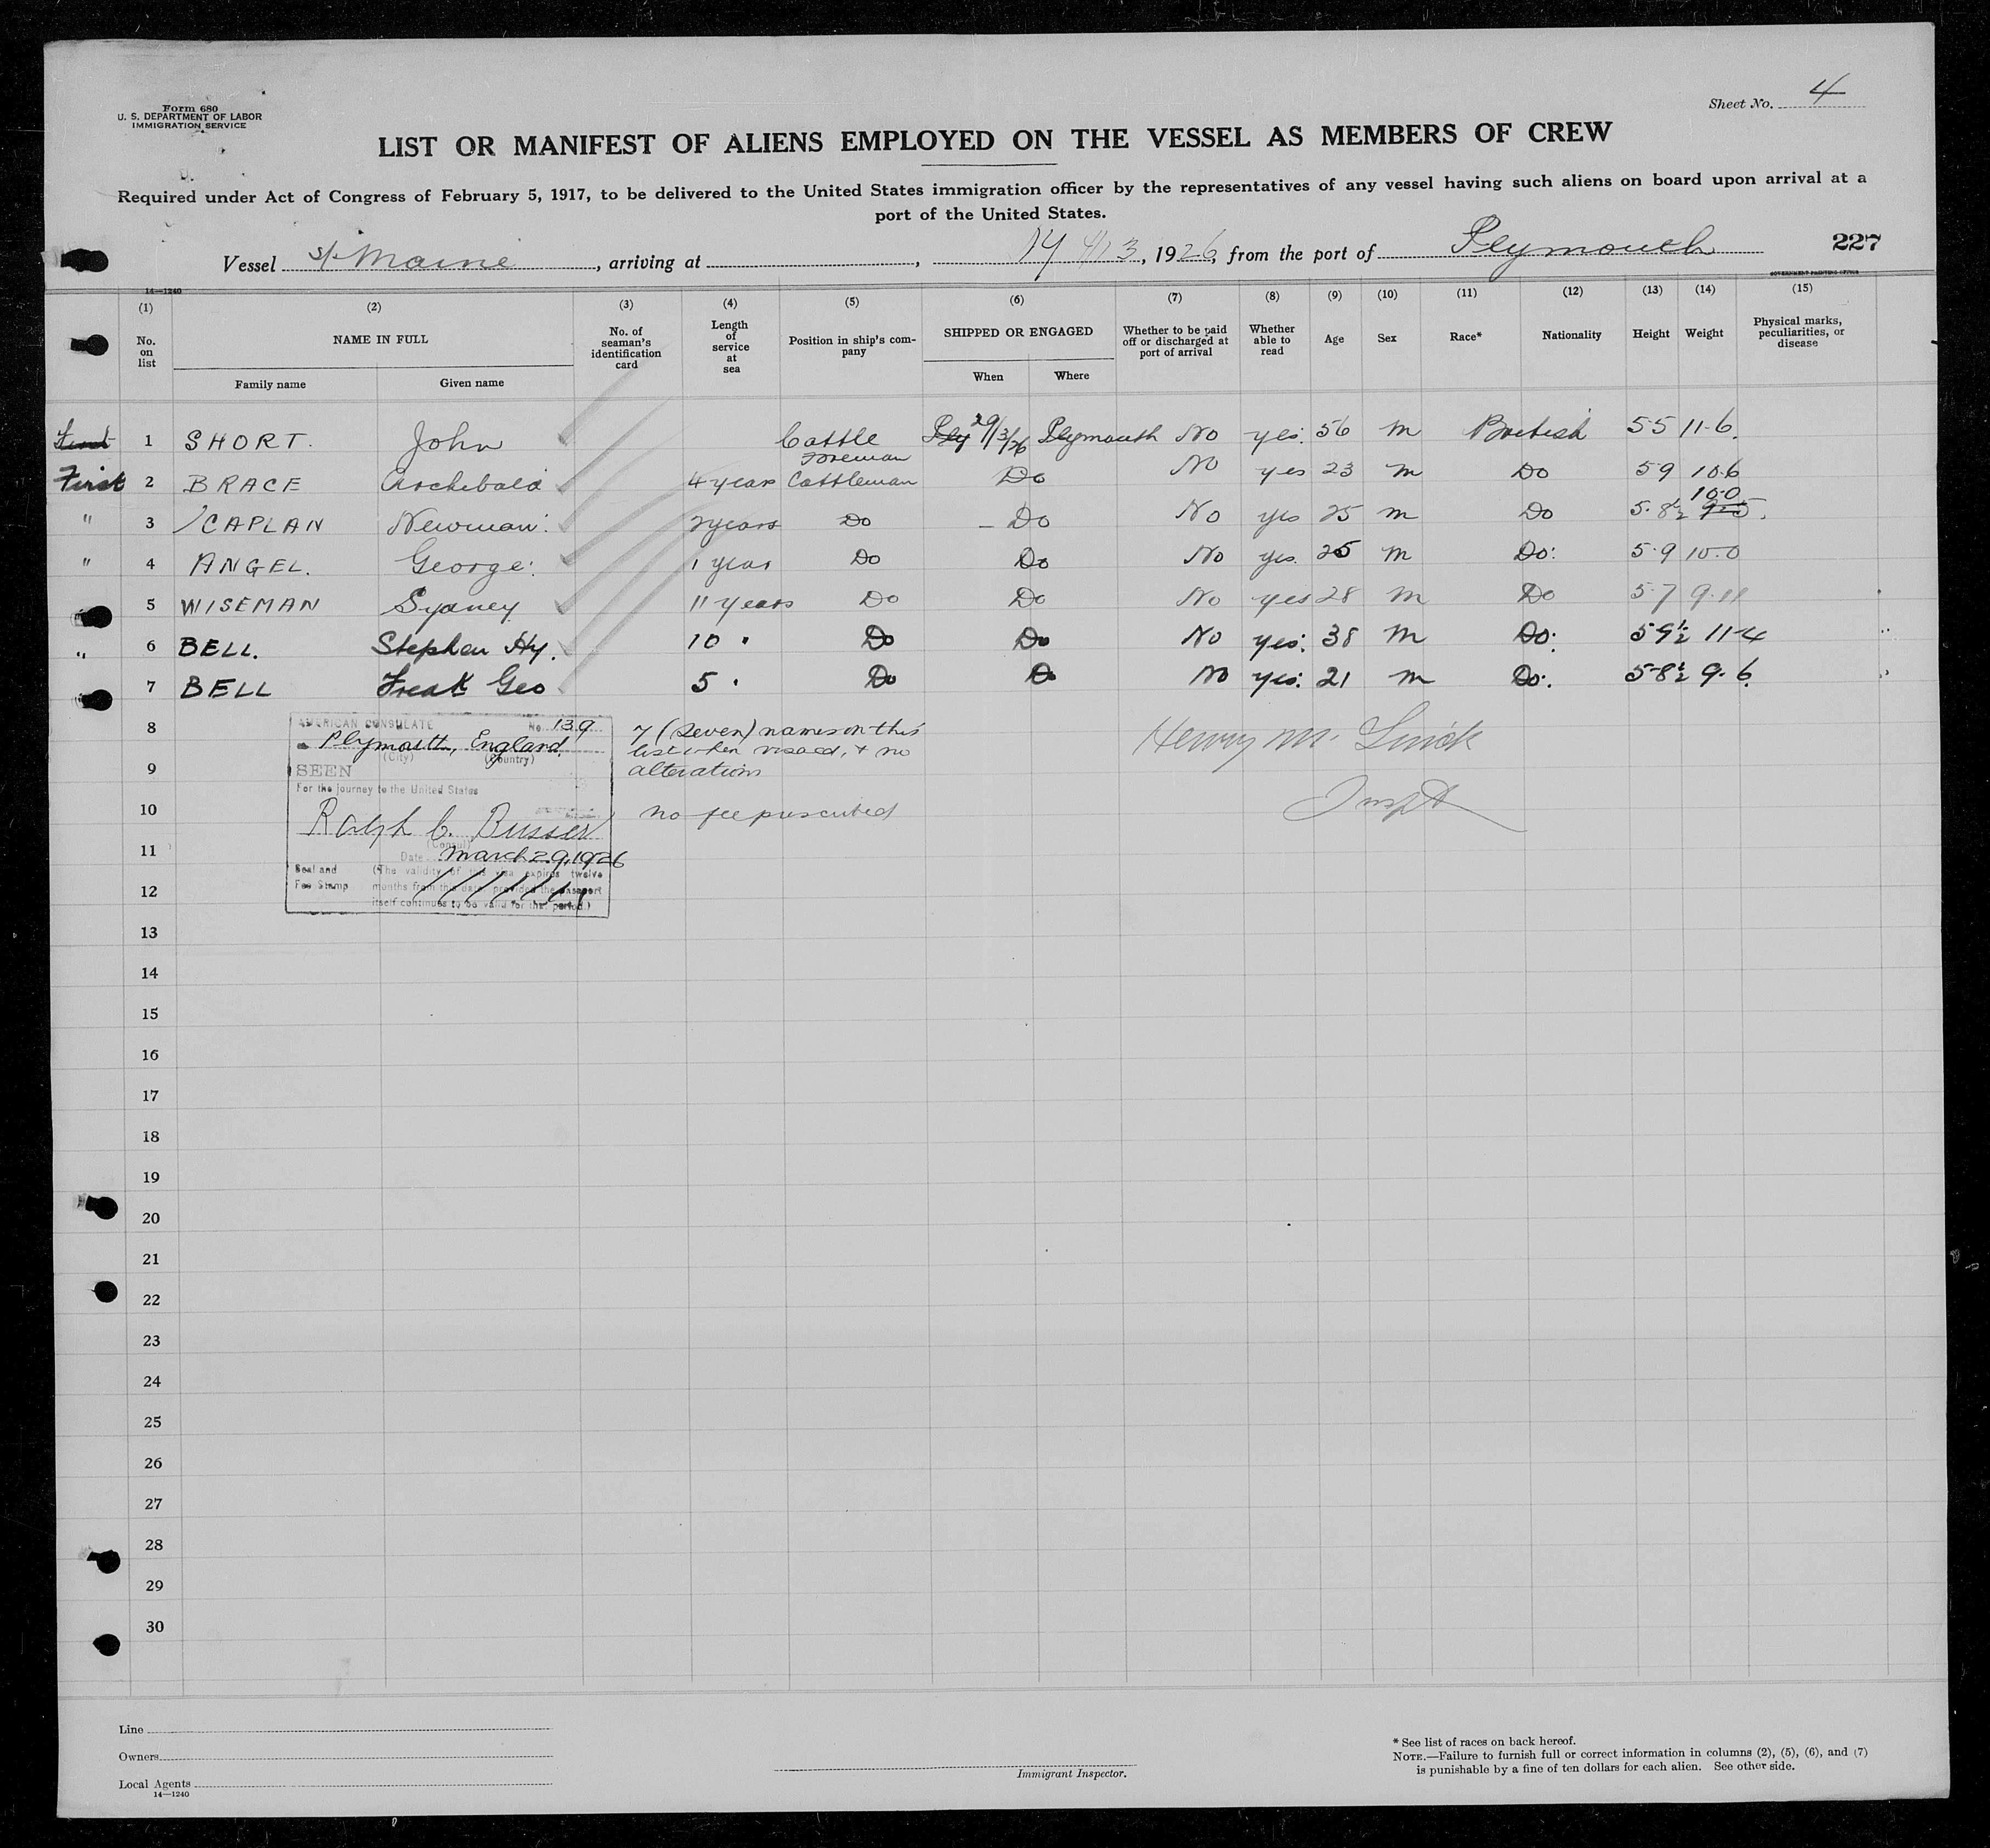 Form 680
U. S. DEPARTMENT OF LABOR
IMMIGRATION SERVICE
Sheet No. 4
LIST OR MANIFEST OF ALIENS EMPLOYED ON THE VESSEL AS MEMBERS OF CREW
Required under Act of Congress of February 5, 1917, to be delivered to the United States immigration officer by the representatives of any vessel having such aliens on board upon arrival at a
port of the United States.
Vessel S/. Maine, arriving at , NY 4/13, 1926, from the port of Plymouth 227
GOVERNMENT PRINTING OFFICE
14—1240
(1) (2) (3) (4) (5) (6) (7) (8) (9) (10) (11) (12) (13) (14) (15)
No. on list NAME IN FULL No. of seaman's identification card Length of service at sea Position in ship's company SHIPPED OR ENGAGED Whether to be paid off or discharged at port of arrival Whether able to read Age Sex Race* Nationality Height Weight Physical marks, peculiarities, or disease
Family name Given name When Where
1 SHORT. John Cattle Foreman Ply 29/3/26 Plymouth No yes. 56 m British 5-5 11-6.
First 2 BRACE Archibald 4 years Cattleman Do No yes 23 m Do 5 9 10.6
" 3 CAPLAN Newman: 2 years Do Do No yes 25 m Do 5.8½ 10.0 9-5.
" 4 ANGEL. George: 1 year Do Do No yes. 25 m Do: 5.9 10.0
5 WISEMAN Sydney 11 years Do Do No yes 28 m Do 5.7 9.11
" 6 BELL. Stephen Hy. 10 " Do Do No yes: 38 m Do: 5-9½ 11-4
7 BELL Freak Geo 5 " Do Do No yes: 21 m Do: 5-8½ 9.6.
8
9
10
11
12
AMERICAN CONSULATE No. 139
Plymouth, England
(City) (Country)
SEEN
For the journey to the United States
Ralph C. Busser
(Consul)
Date March 29, 1926
Seal and Fee Stamp
(The validity of this visa expires twelve
months from this date, provided the passport
itself continues to be valid for that period.)
7 (Seven) names on this
list when visaed, & no
alterations
No fee prescribed
Henry M.
Inspt
13
14
15
16
17
18
19
20
21
22
23
24
25
26
27
28
29
30
Line
Owners
Local Agents
14—1240
Immigrant Inspector.
* See list of races on back hereof.
NOTE.—Failure to furnish full or correct information in columns (2), (5), (6), and (7)
is punishable by a fine of ten dollars for each alien. See other side.